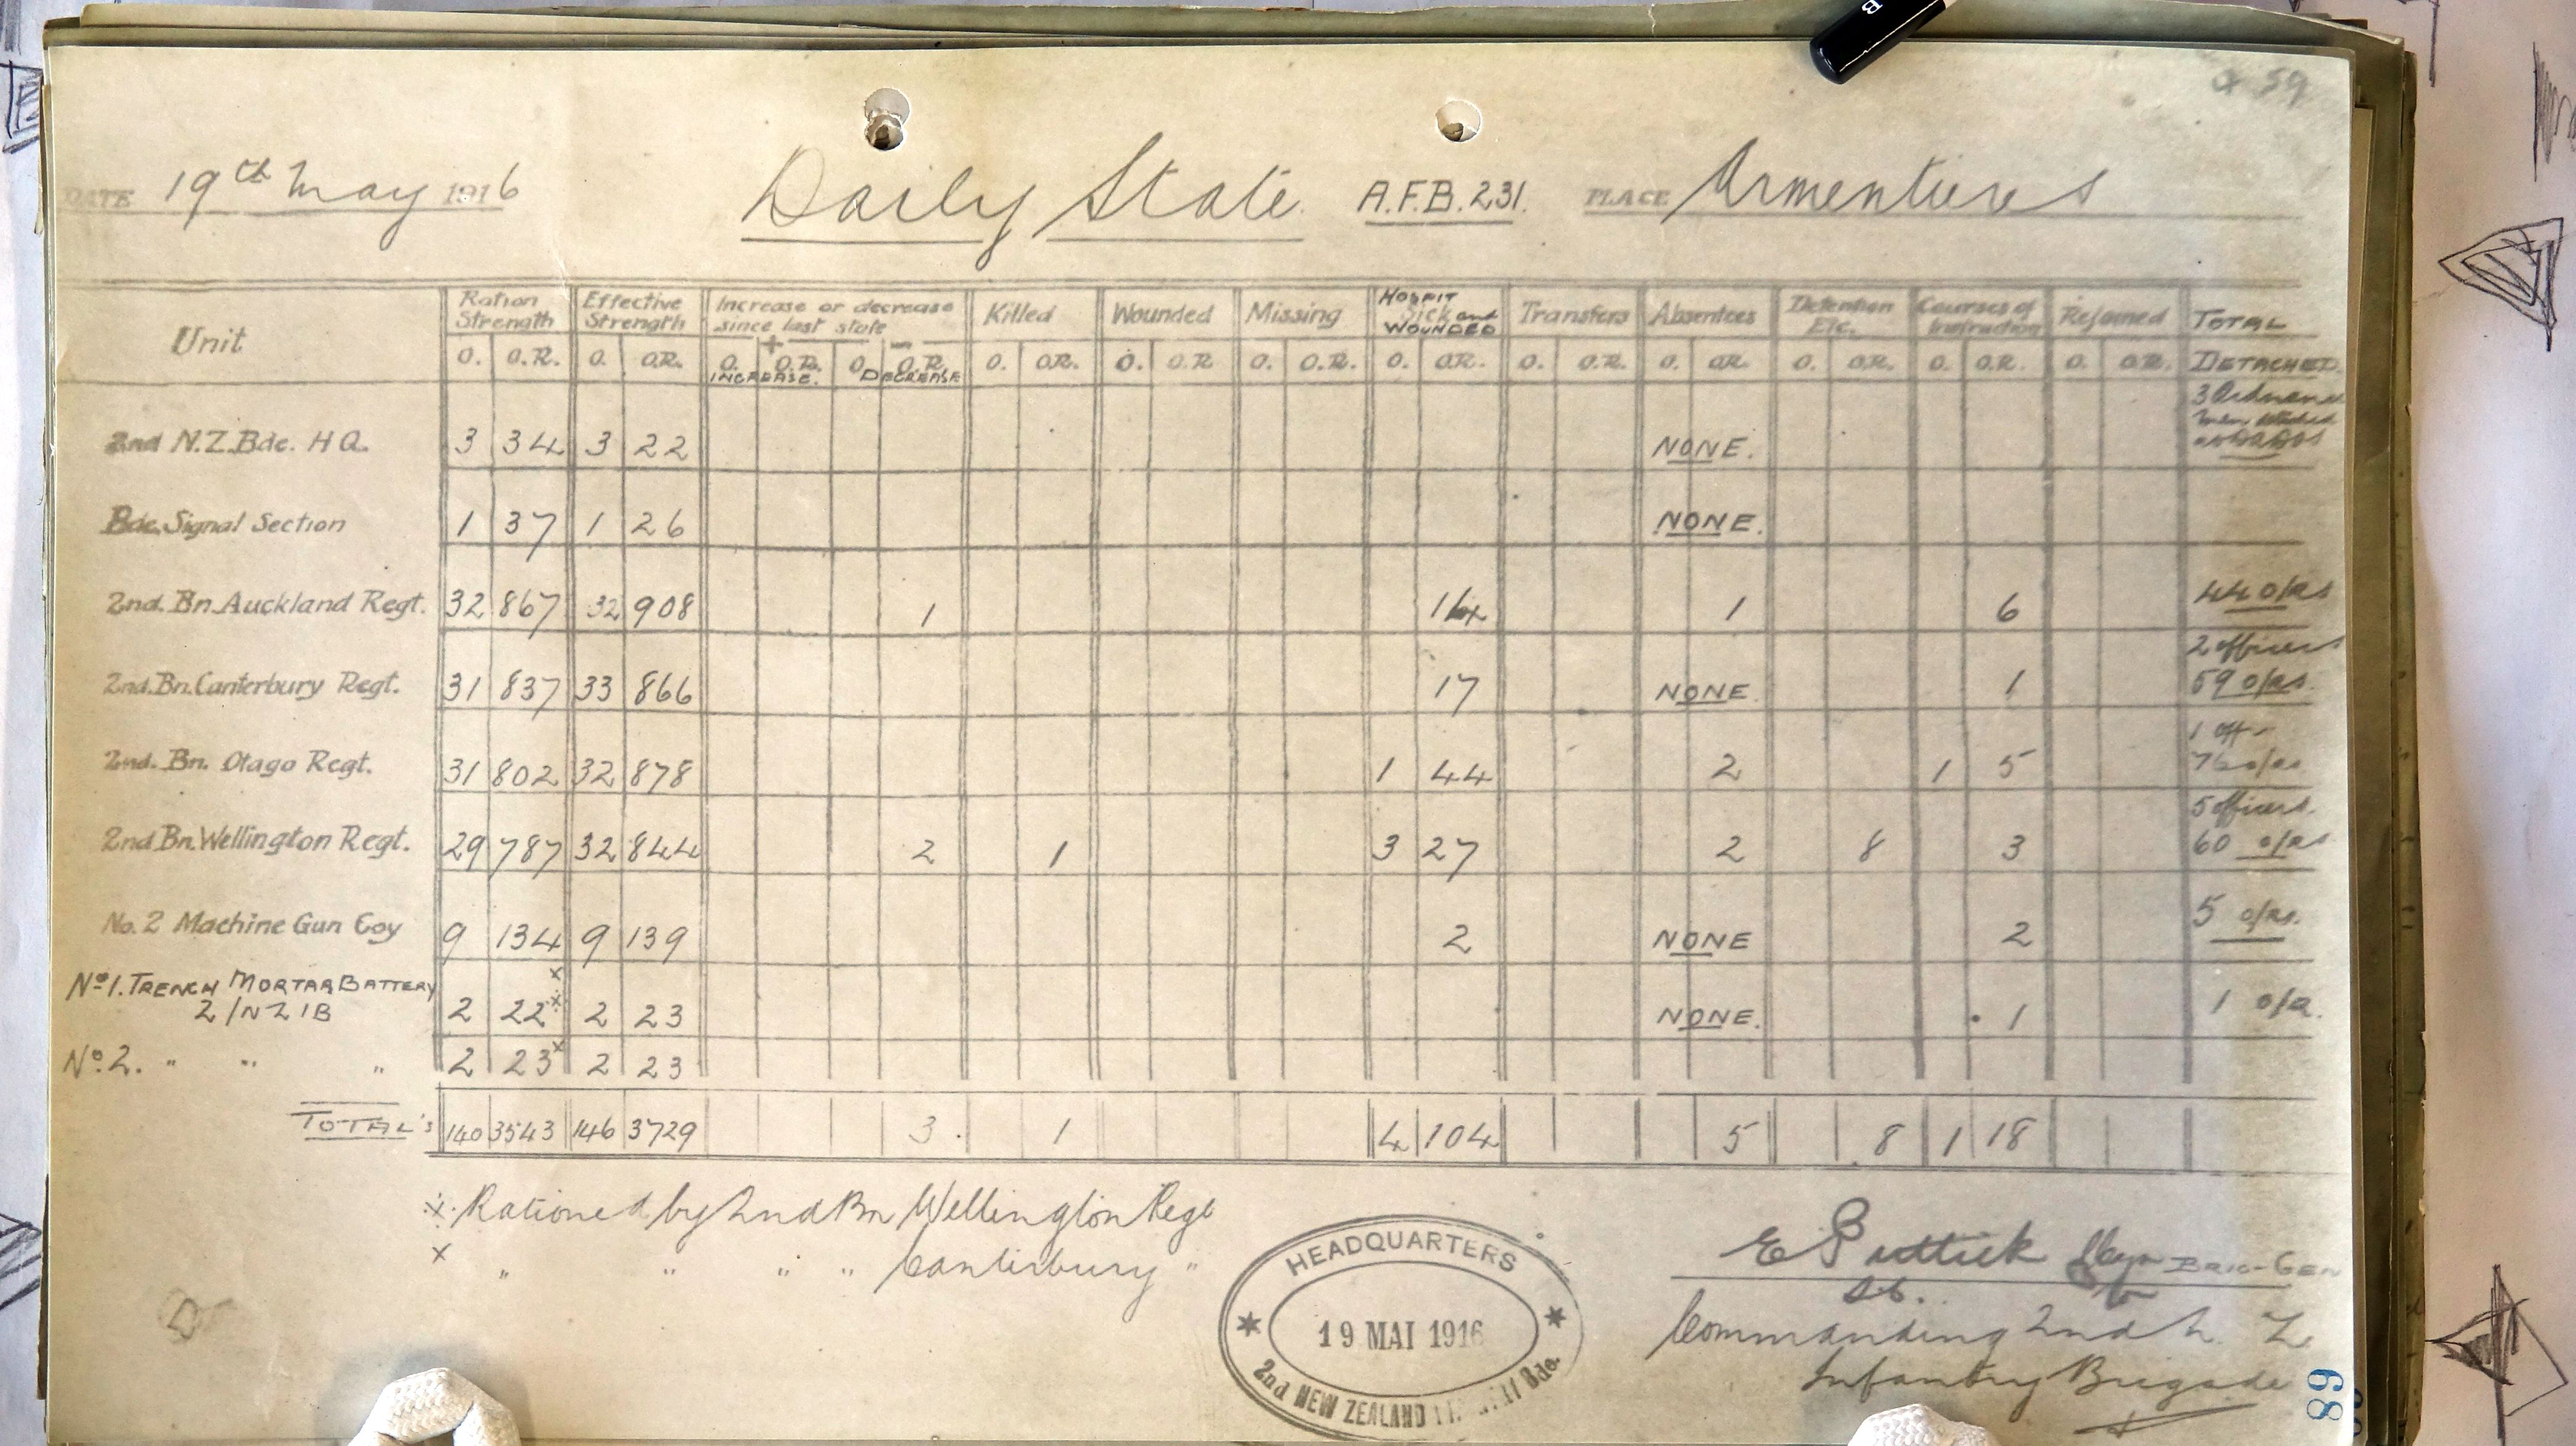 B
59
DATE 19th May 1916 Daily State. A.F.B. 231. PLACE Armentieres
Unit Ration Strength Effective Strength Increase or decrease since last state Killed Wounded Missing Hospit Sick and WOUNDED Transfers Absentees Detention Etc. Courses of Instruction Rejoined TOTAL DETACHED
+ -
O. O.R. O. O.R. O. O.R. O. O.R. O. O.R. O. O.R. O. O.R. O. O.R. O. O.R. O. O.R. O. O.R. O. O.R. O. O.R.
INCREASE. DECREASE
2nd N.Z. Bde. H Q. 3 34 3 22 NONE. 3 men attached
Bde. Signal Section 1 37 1 26 NONE.
2nd. Bn. Auckland Regt. 32 867 32 908 1 1 6 44 o/rs
2nd. Bn. Canterbury Regt. 31 837 33 866 17 NONE. 1 2 officers 59 o/rs.
2nd. Bn. Otago Regt. 31 802 32 878 1 44 2 1 5 1 off 76 o/rs
2nd Bn. Wellington Regt. 29 787 32 844 2 1 3 27 2 8 3 5 officers. 60 o/rs
No. 2 Machine Gun Coy 9 134 9 139 2 NONE 2 5 o/rs.
No 1. TRENCH MORTAR BATTERY
2/NZIB 2 22 x 2 23 NONE. 1 1 o/r.
No 2. " " " 2 23 x 2 23
TOTAL's 140 3543 146 3729 3. 1 4 104 5 8 1 18
Rationed by 2nd Bn Wellington Regt
x " " " " Canterbury "
HEADQUARTERS
19 MAI 1916
2nd NEW ZEALAND Bde.
E Puttick BRIG-GEN
Commanding 2nd N. Z
Infantry Brigade
89